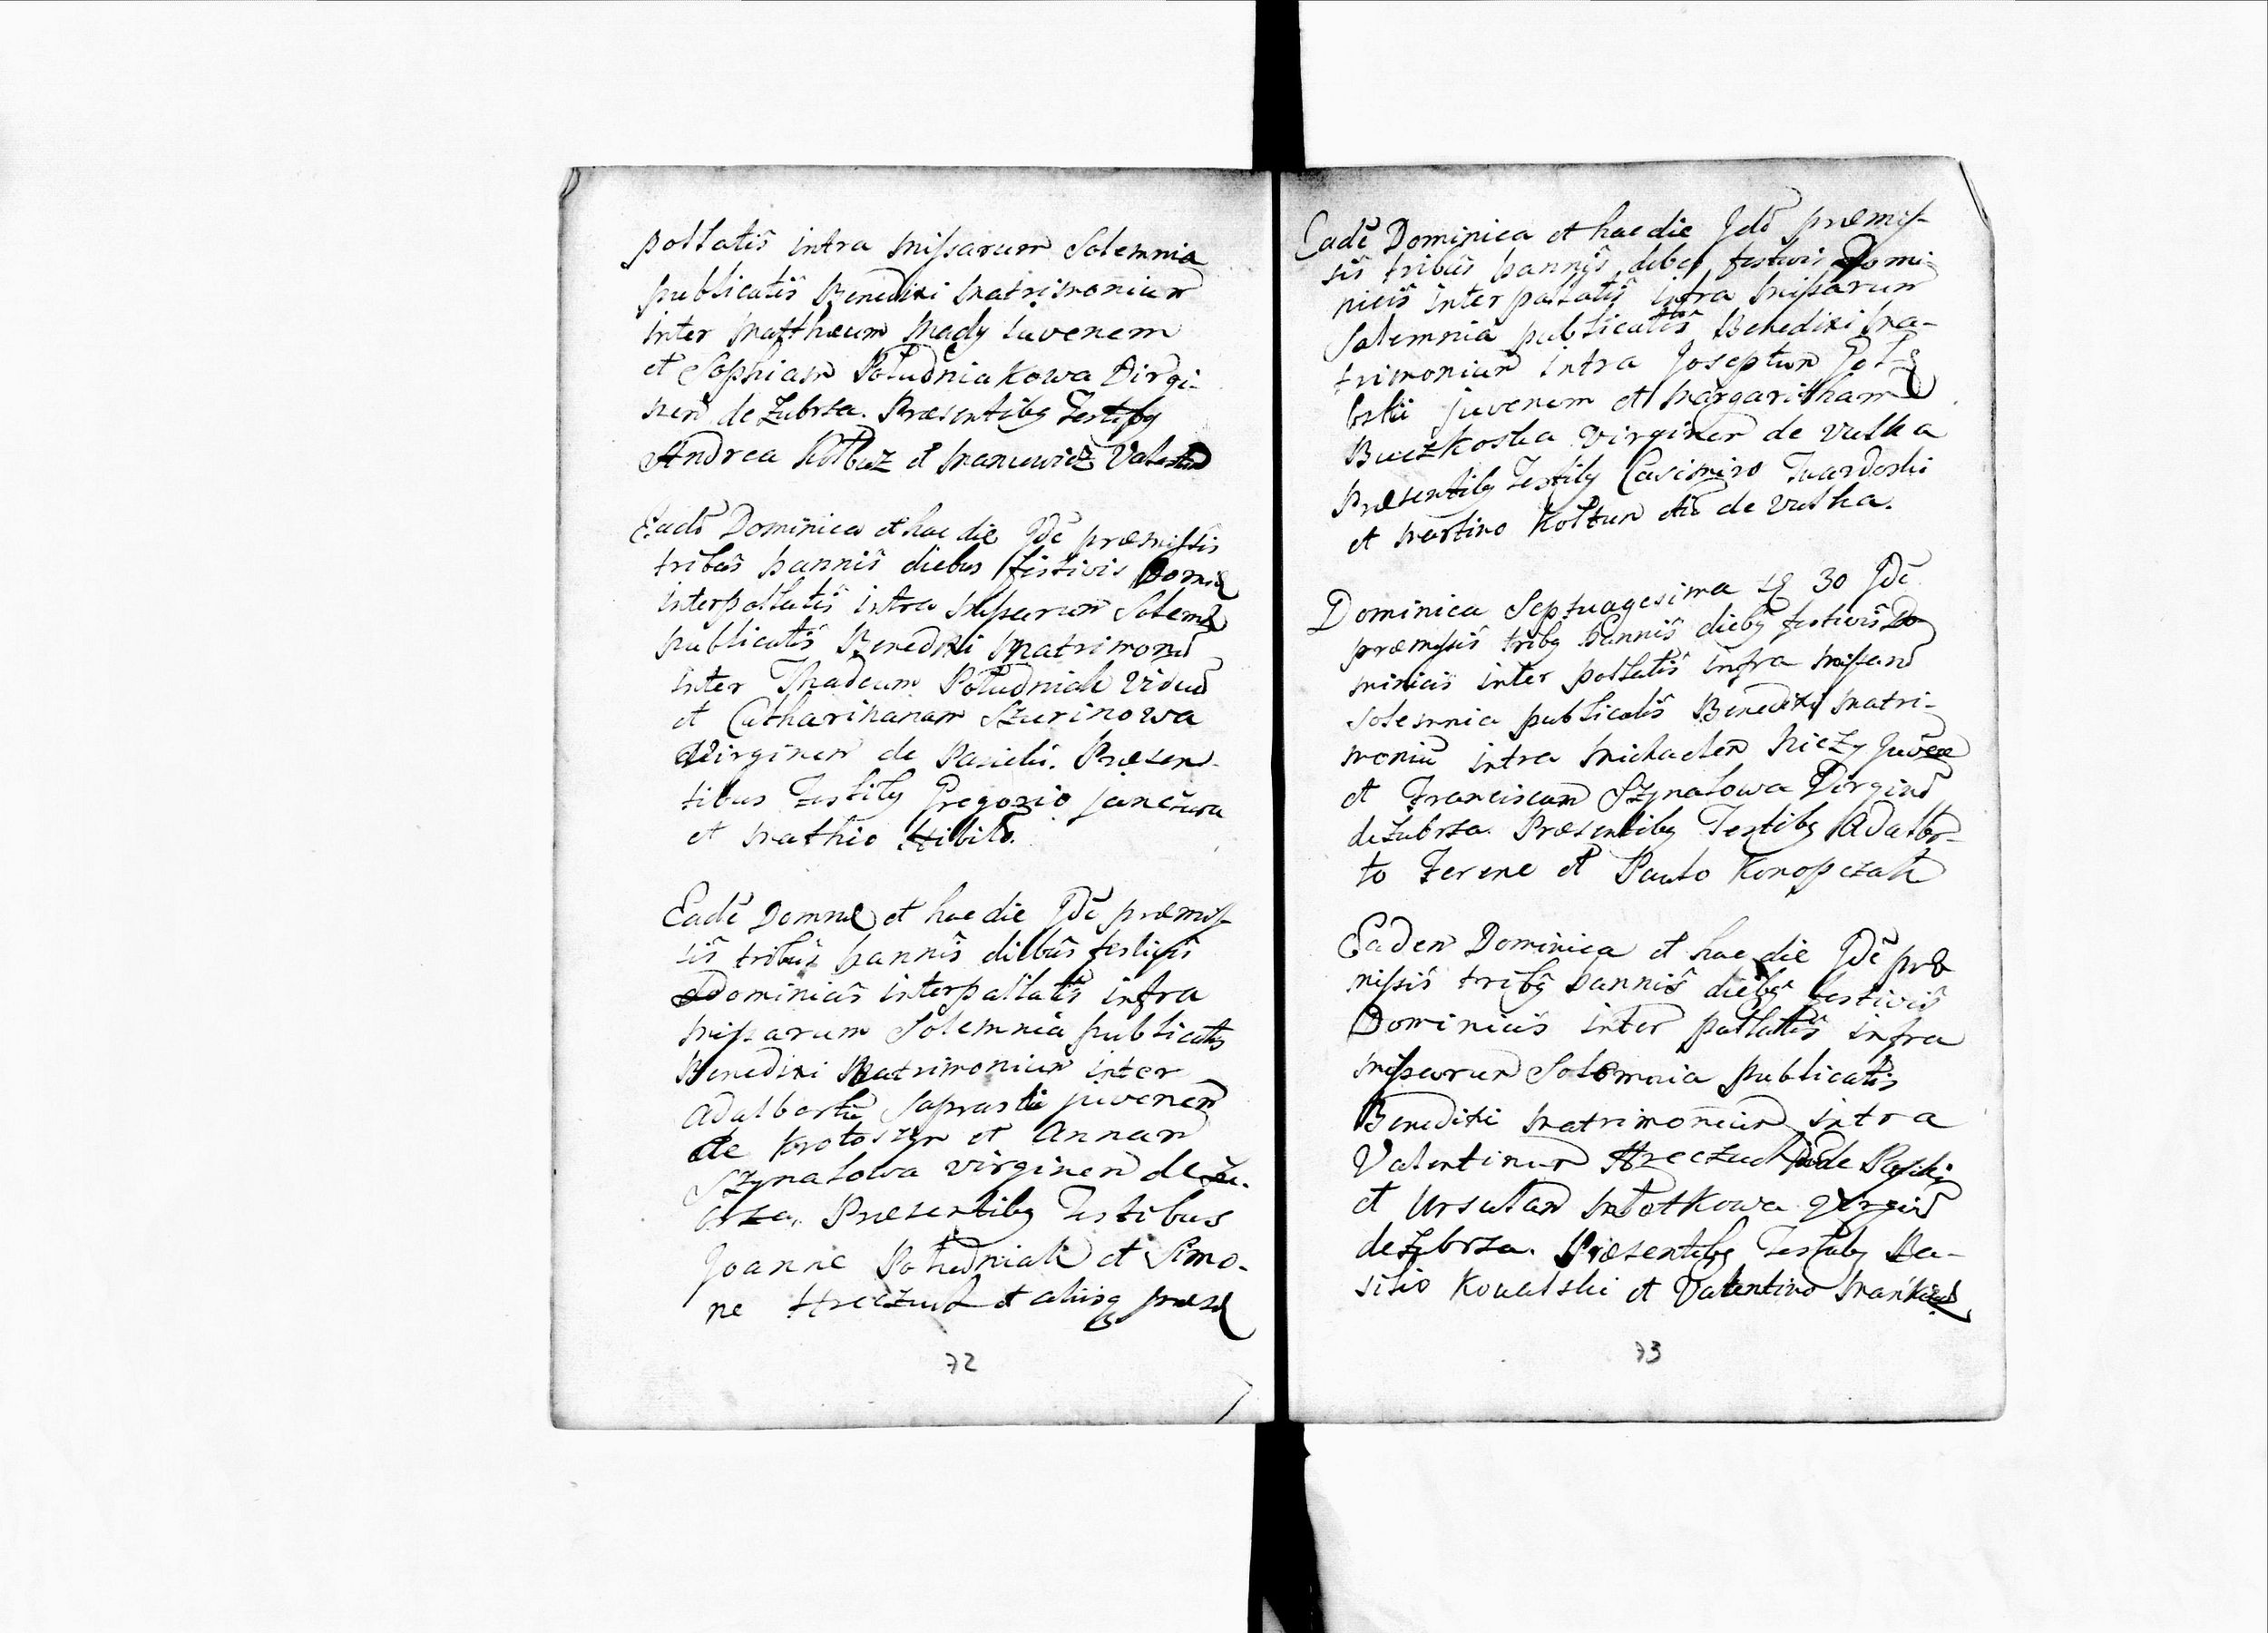 pollatis intra missarum Solemnia
publicatis Benedixi Matrimonium
inter Matthæum Mady Iuvenem
et Sophiam Południakowa Virgi-
nem de Zubrza. Præsentibg Testibg
Andrea Kołbuz et
Eadē Dominica et hac die Idē præmissis
tribûs bannis diebus festivis
interpollatis intra Missarum
publicatis Benedixi Matrimoniū
inter Thadeum Południak viduū
et Catharinanam Szurinowa
Virginem de Pasieki. Præsen-
tibus Testibg Gregorio
et Mathio
Eadē et hac die Idē præmis-
sis tribûs bannis diebûs festivis
Dominicis interpallatis infra
Missarum Solemnia publicatis
Benedixi Matrimonium inter
Adalbertū juvenem
de Krotoszyn et Annam
Szynalowa virginem de Zu-
brza. Præsentibg Testibus
Joanne Południak et Simo-
ne Hreczuch et aliisq
72
Eadē Dominica et hac die præmis-
sis tribûs bannis festivis Domi-
nicis inter pallatis infra Missarum
Solemnia publicatis Benedixi Ma-
trimonium intra Josephum
juvenem et Margaritham
Buczkoska Virginem de Vulka
Præsentibg Testibg Casimiro Twardoski
et Martino Kołtun de Vulka.
Dominica Septuagesima 30 Idē
præmissis tribg bannis diebg festivis Do
minicis inter pollatis infra
Solemnia publicatis Benedixi Matri-
moniū intra Michaelem
et Franciscam Szynalowa Virginē
de Zubrza. Præsentibg Testibg Adalber-
to Ferenc et Paulo Konopczak
Eadem Dominica et hac die Idē præ
missis tribg bannis diebg festivis
Dominicis inter pallatis infra
Missarum Solemnia publicatis
Benedixi Matrimonium intra
Valentinum Hreczuch de
et Ursulam Młotkowa
de Zubrza. Præsentibg Testibg Ba-
silio Kowalski et Valentino
73